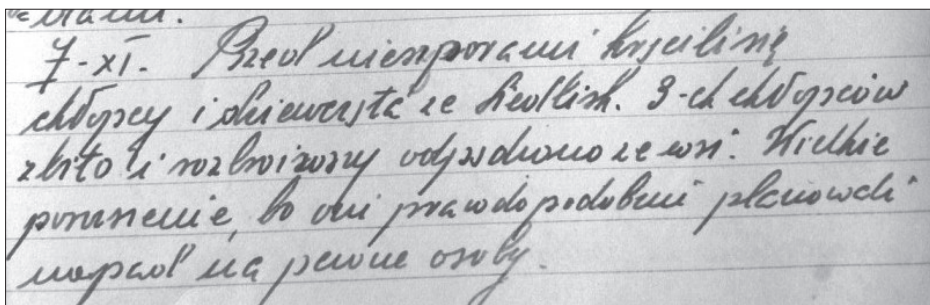 7-XI. Przed nieszporami kręcili się
chłopcy i dziewczęta ze Siedlisk. 3-ch chłopców
zbito i rozbroiwszy odpędzono ze wsi. Wielkie
poruszenie, bo oni prawdopodobni planowali
napad na pewne osoby.